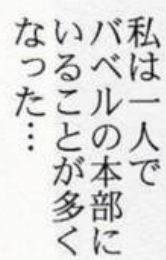 私は一人で
バベルの本部に
いることが多く
なった…